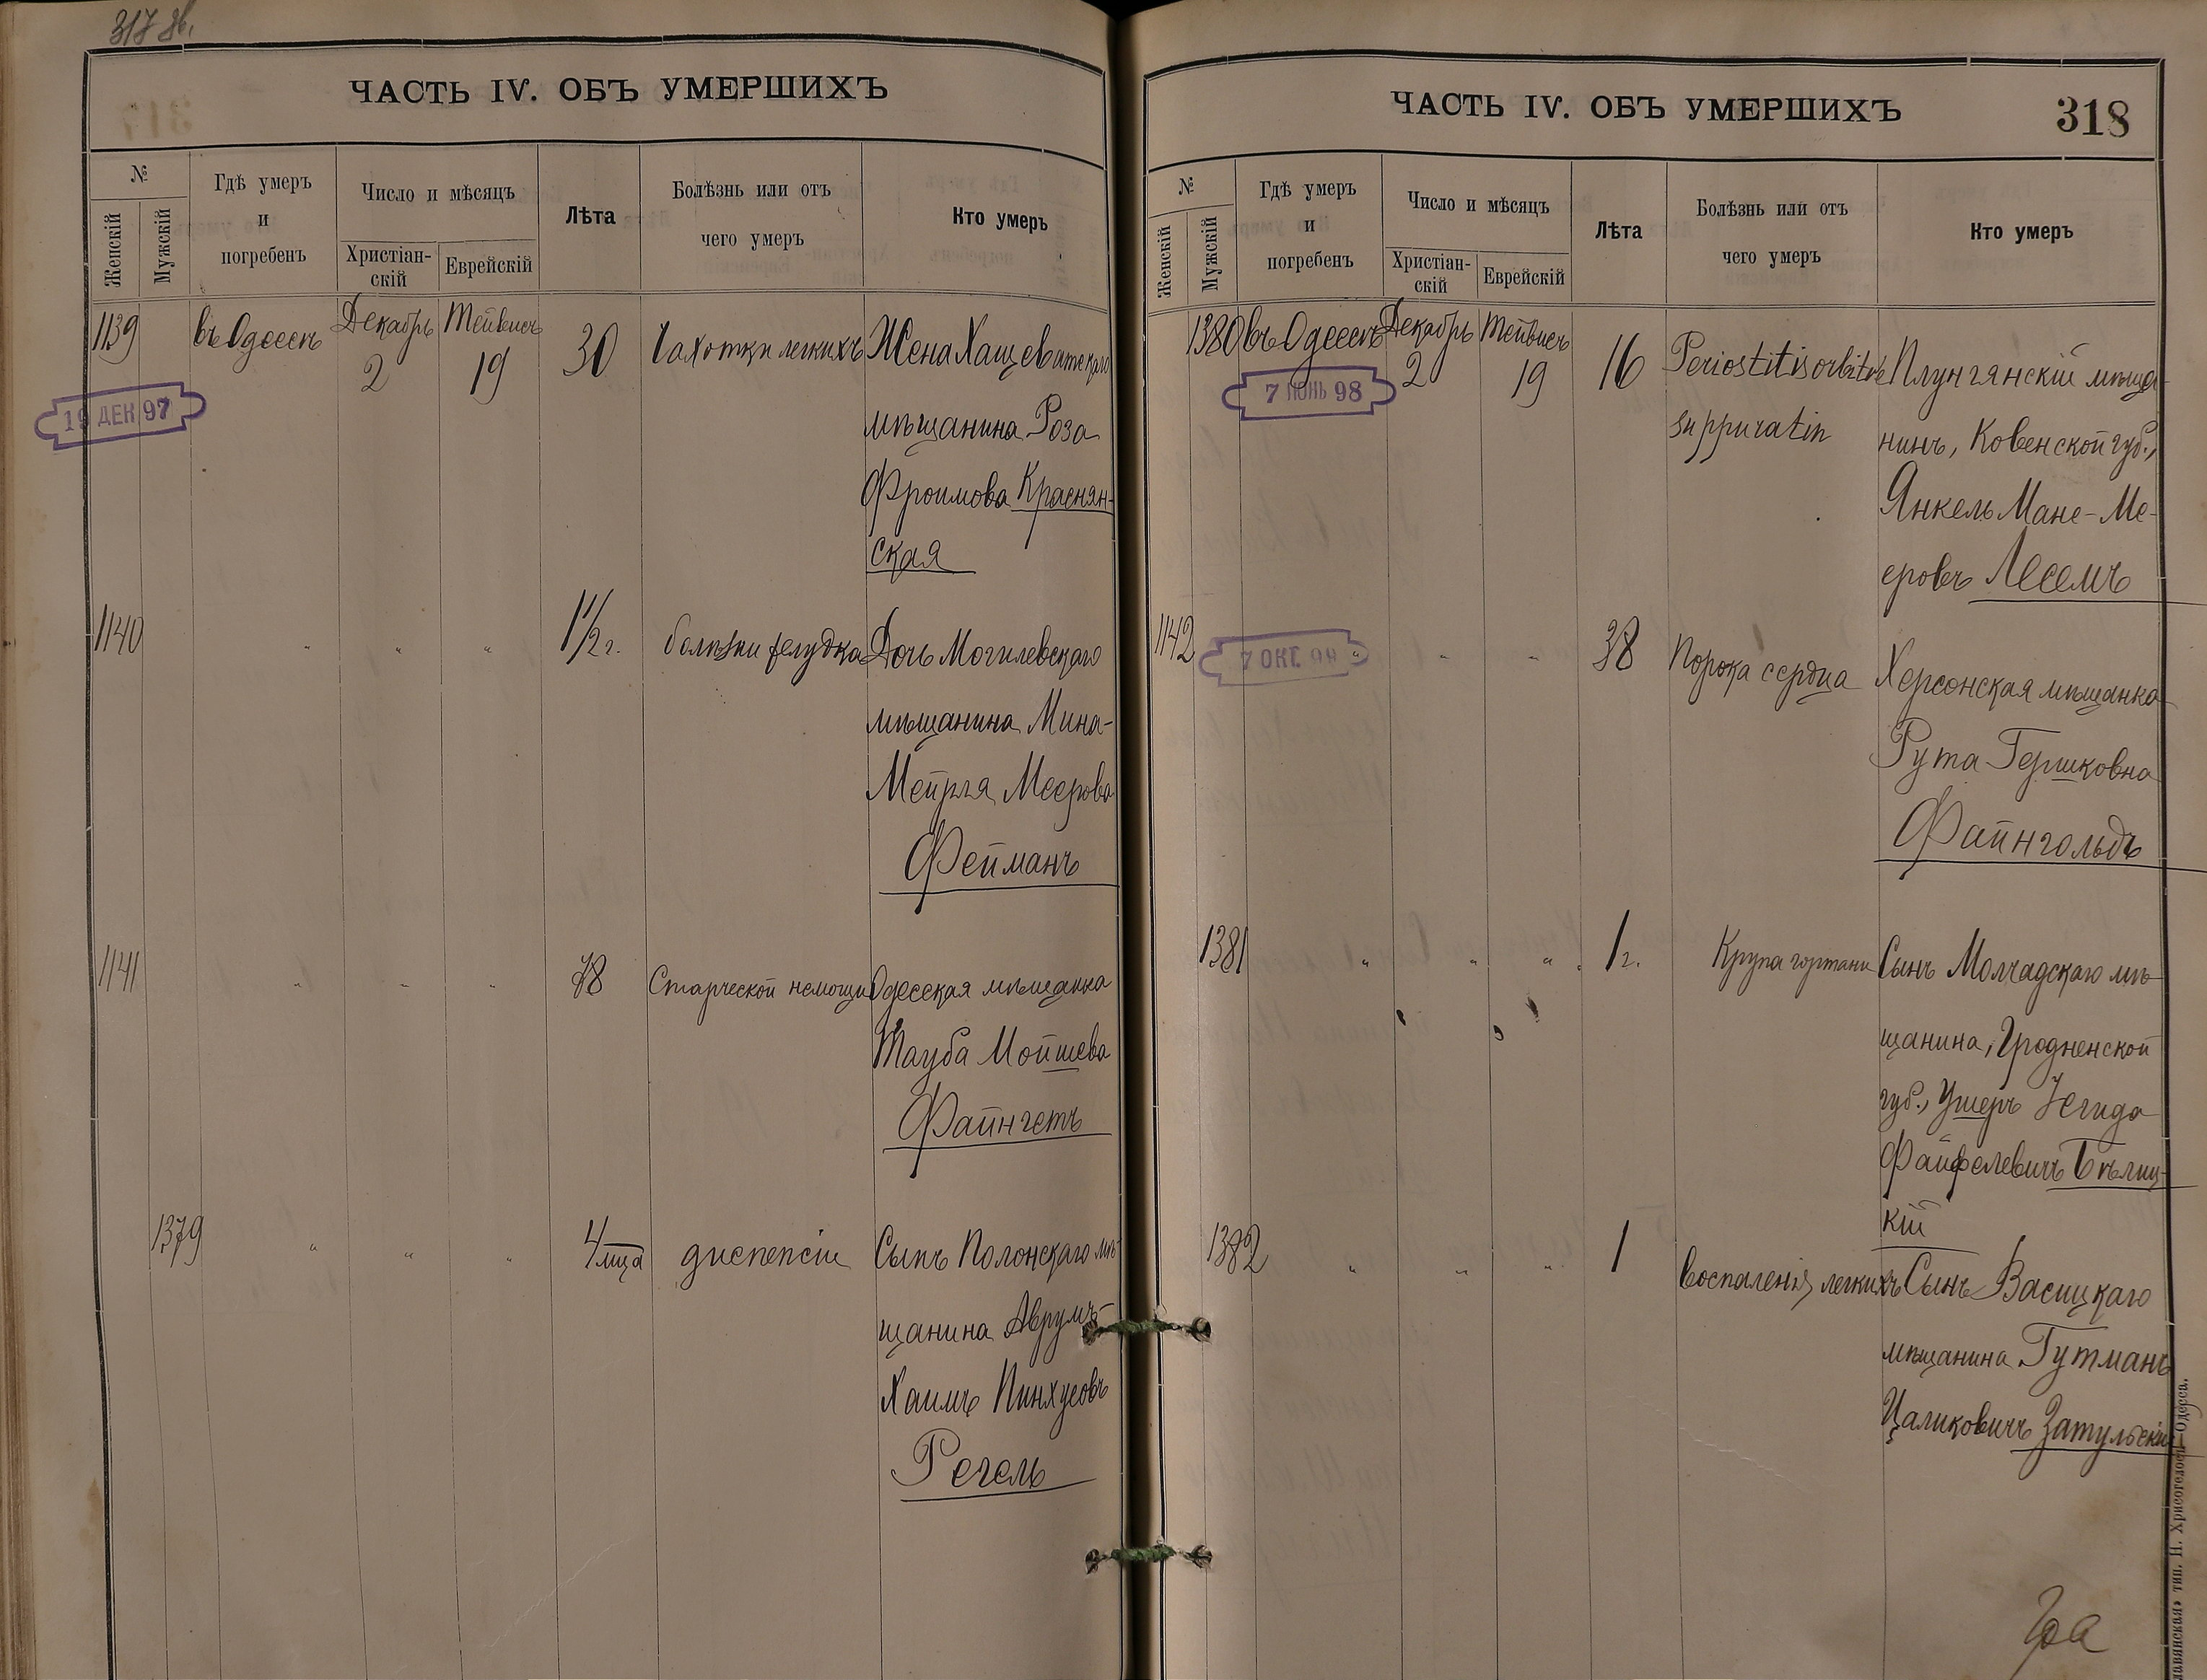 317 об.
ЧАСТЬ IV. ОБЪ УМЕРШИХЪ
№
Женскій
Мужскій
Гдѣ умеръ
и
погребенъ
Число и мѣсяцъ
Христіан-
скій
Еврейскій
Лѣта
Болѣзнь или отъ
чего умеръ
Кто умеръ
1139 въ Одессѣ Декабрь 2 Тейвисъ 19 30 Чахотки легкихъ Жена Хащеватскаго
19 ДЕК 97
мѣщанина Роза
Фроимова Краснян-
ская
1140 " " " 1 1/2 г. болѣзни желудка Дочь Могилевскаго
мѣщанина Мина-
Мейрля Меерова
Фейманъ
1141 " " " 78 Старческой немощи Одесская мѣщанка
Тауба Мойшева
Файнгетъ
1379 " " " 4 м̄ца диспепсіи Сынъ Полонскаго мѣ-
щанина Аврумъ-
Хаимъ Пинхусовъ
Регель
ЧАСТЬ IV. ОБЪ УМЕРШИХЪ
318
№
Женскій
Мужскій
Гдѣ умеръ
и
погребенъ
Число и мѣсяцъ
Христіан-
скій
Еврейскій
Лѣта
Болѣзнь или отъ
чего умеръ
Кто умеръ
1380 въ Одессѣ Декабрь 2 Тейвисъ 19 16 Periostitis orbitae Плунгянскій мѣща-
7 ІЮНЬ 98
suppuratin нинъ, Ковенской губ.,
Янкель Мане-Ме-
еровъ Лесемъ
1142 " " " 38 Порока сердца Херсонская мѣщанка
7 ОКТ. 98
Рута Гершковна
Файнгольдъ
1381 " " " 1 г. Крупа гортани Сынъ Молчадскаго мѣ-
щанина, Гродненской
губ., Ушеръ Іегида
Файфелевичъ Бѣлиц-
кій
1382 " " " 1 воспаленія легкихъ Сынъ Васицкаго
мѣщанина Гутманъ
Цаликовичъ Затульскій
тип. Н. Хрисогелосъ, Одесса.